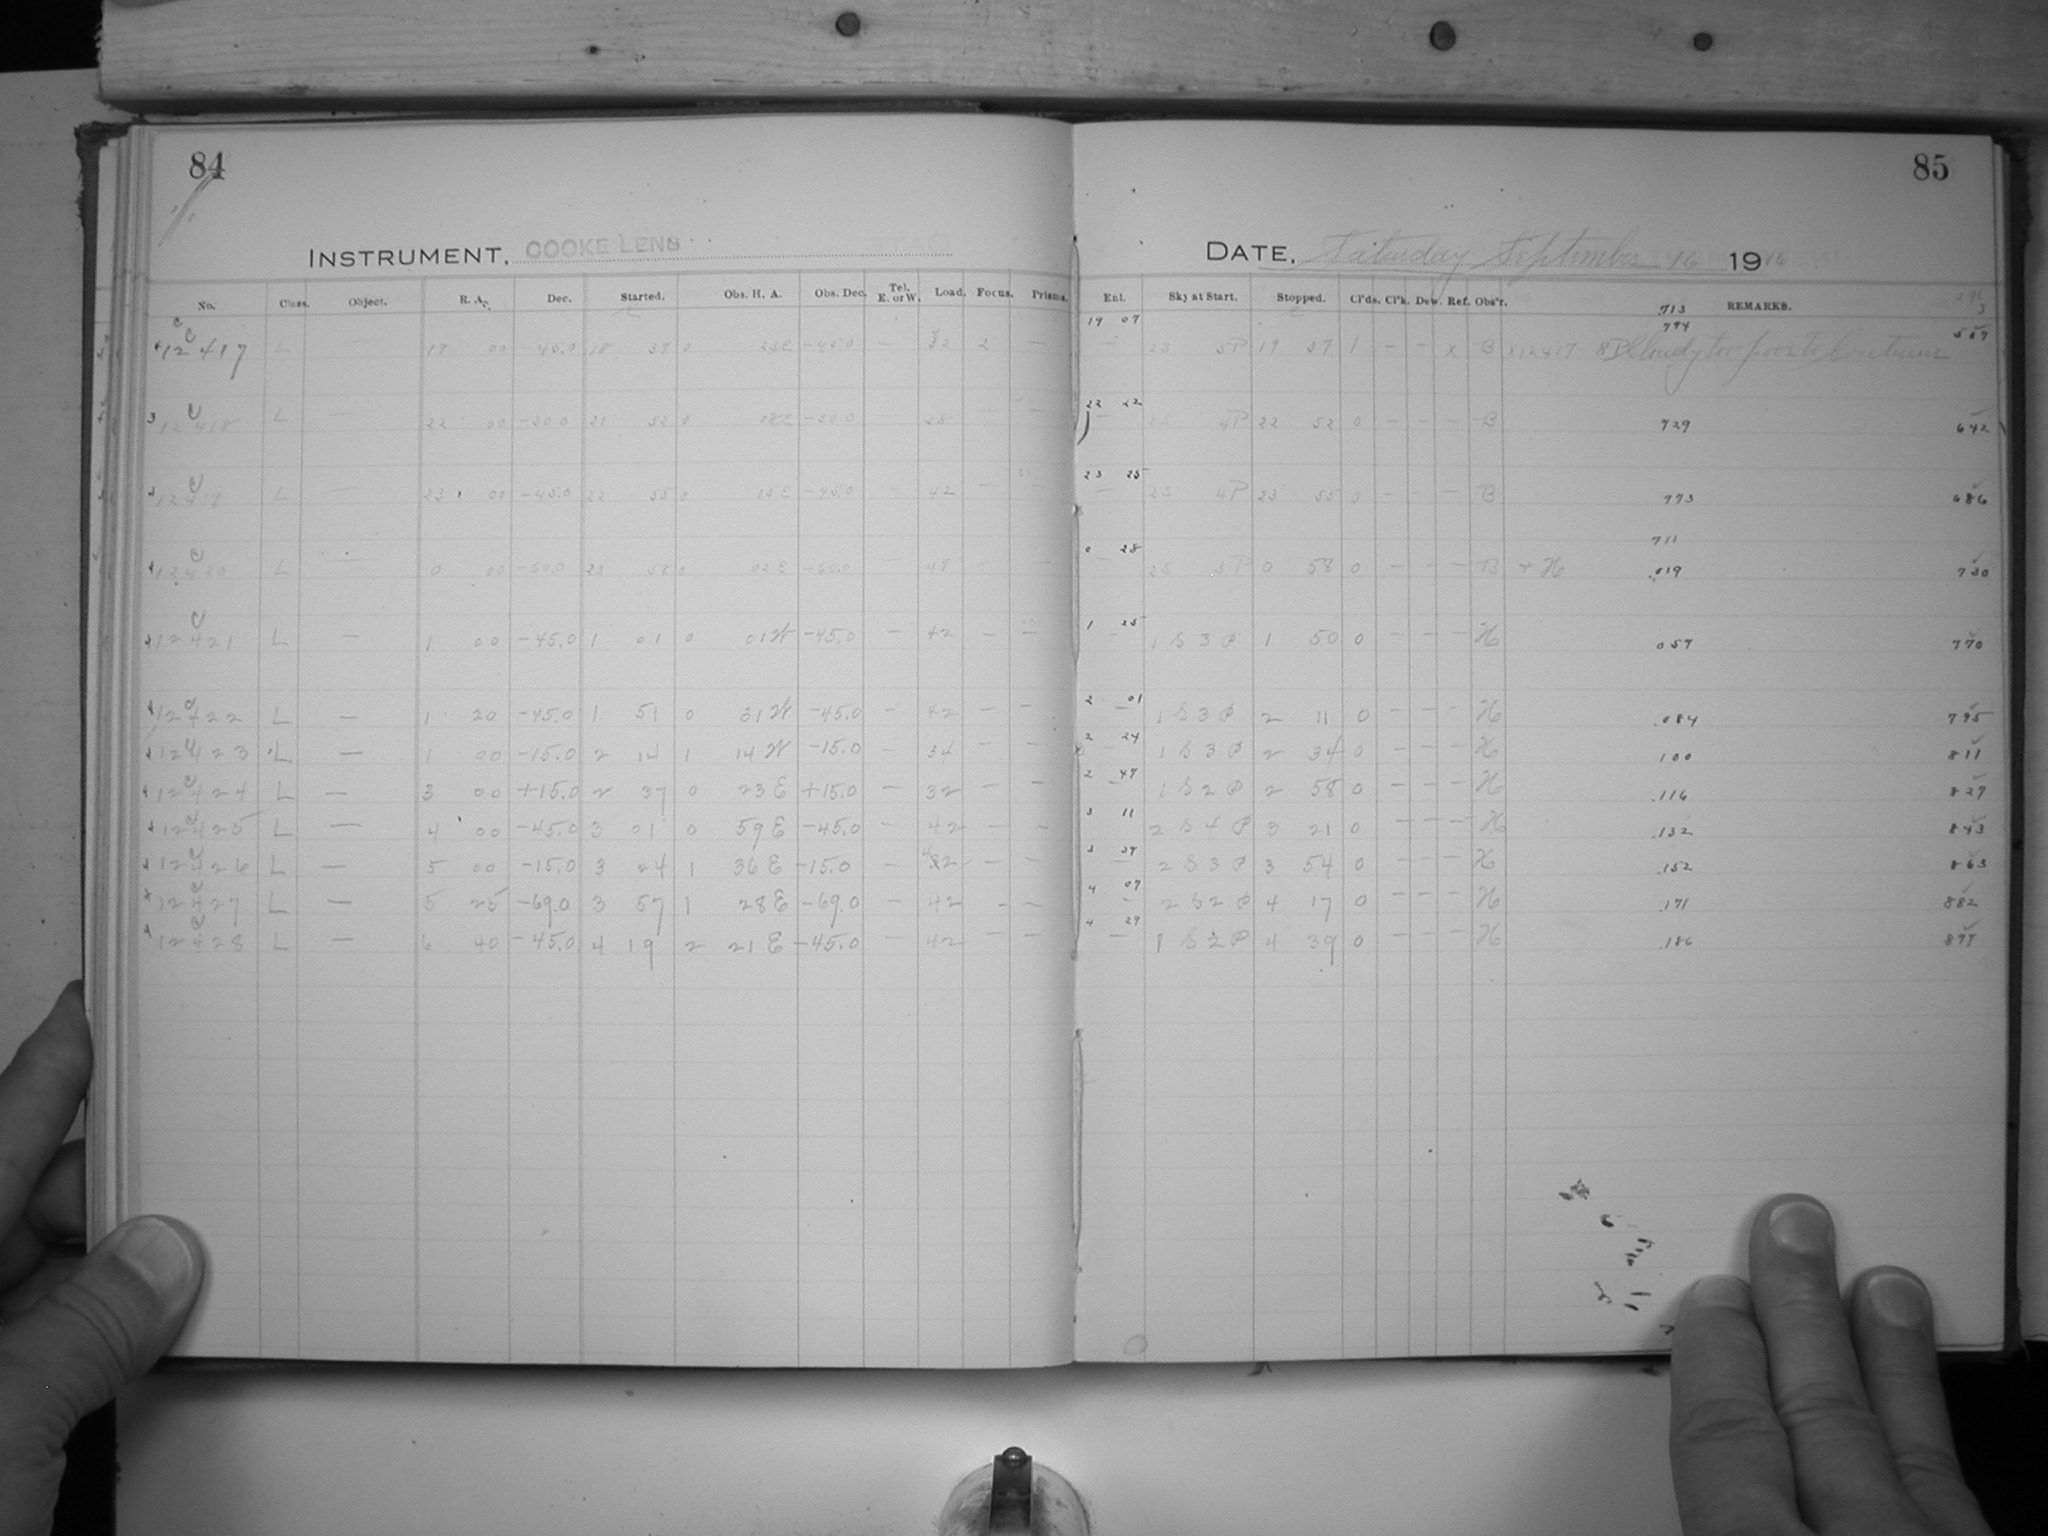 84
INSTRUMENT, COOKE LENS
No. Class. Object. R. A. Dec. Started. Obs. H. A. Obs. Dec. Tel. E. or W. Load. Focus. Prisms.
12417 L — 19 00 -45.0 18 37 0 23E -45.0 — 2 —
12418 L — 22 00 -30.0 21 52 0 -30.0 28 — —
12419 L — 23 00 -45.0 22 55 0 15E -45.0 — 42 — —
12420 L — 0 00 -60.0 23 58 0 02E -60.0 — 47 — —
12421 L — 1 00 -45.0 1 01 0 01W -45.0 — 42 — —
12422 L — 1 20 -45.0 1 51 0 31W -45.0 — 42 — —
12423 L — 1 00 -15.0 2 14 1 14W -15.0 — 34 — —
12424 L — 3 00 +15.0 2 37 0 23E +15.0 — 32 — —
12425 L — 4 00 -45.0 3 01 0 59E -45.0 — 42 — —
12426 L — 5 00 -15.0 3 24 1 36E -15.0 — — —
12427 L — 5 25 -69.0 3 57 1 28E -69.0 — 42 - —
12428 L — 6 40 -45.0 4 19 2 21E -45.0 — 42 — —
85
DATE, Saturday September 16 1916
Enl. Sky at Start. Stopped. Cl'ds. Cl'k. Dew. Ref. Obs'r. REMARKS.
713
19 07 794 3
— 2S 5P 19 37 1 — — X B X12417 Cloudy too poor to Continue 509
22 22 — 2S 4P 22 52 0 — — — B 729 642
23 25 — 2S 4P 23 55 0 — — — B 773 686
711
0 28 2S 3P 0 58 0 — — — B + H .019 730
1 25 1S 3P 1 50 0 — — — H 057 770
2 01 — 1S 3P 2 11 0 — — — H .084 795
2 24 — 1S 3P 2 34 0 — — — H 100 811
2 47 — 1S 2P 2 58 0 — — — H .116 827
3 11 2S 4P 3 21 0 — — — H .132 843
3 39 — 2S 3P 3 54 0 — — — H .152 863
4 07 — 2S 2P 4 17 0 — — — H .171 882
4 29 — 1S 2P 4 39 0 — — — H .186 897